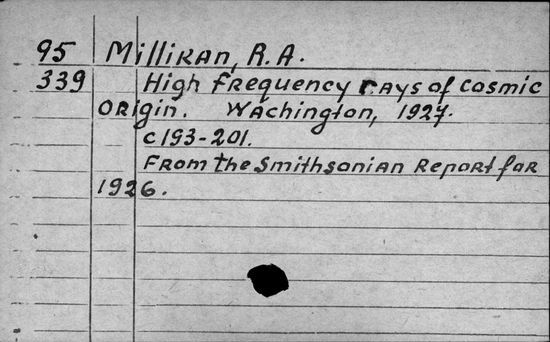 95 Millikan, R.A.
339 High frequency rays of cosmic
origin. Wachington, 1927.
c193-201.
From the Smithsonian Report for
1926.